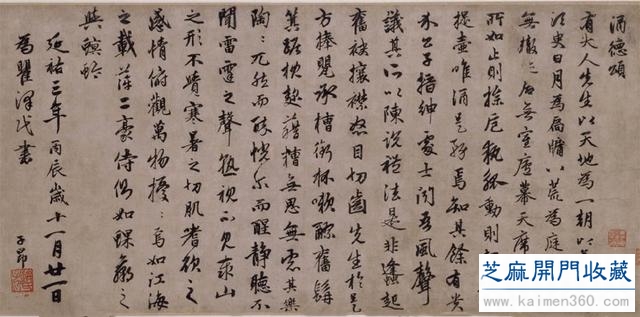 酒德頌
有大人先生以天地為一朝以
須臾日月為扃牖八荒為庭
無轍跡居無室廬幕天席
所如止則操卮執觚動則
提壺唯酒是務焉知其餘有貴
介公子搢紳處士聞吾風聲
議其所以陳說禮法是非蠭起
奮袂攘襟怒目切齒先生於是
方捧甖承槽銜杯漱醪奮髯
箕踞枕麴藉糟無思無慮其樂
陶〻兀然而醉恍尔而醒靜聽不
聞雷霆之聲熟視不見泰山
之形不覺寒暑之切肌耆欲之
感情俯觀萬物擾〻焉如江海
之載萍二豪侍側如蜾蠃之
與螟蛉
延祐三年丙辰歲十一月廿一日
為瞿澤民書
子昂
芝麻開門收藏
www.kaimen360.com